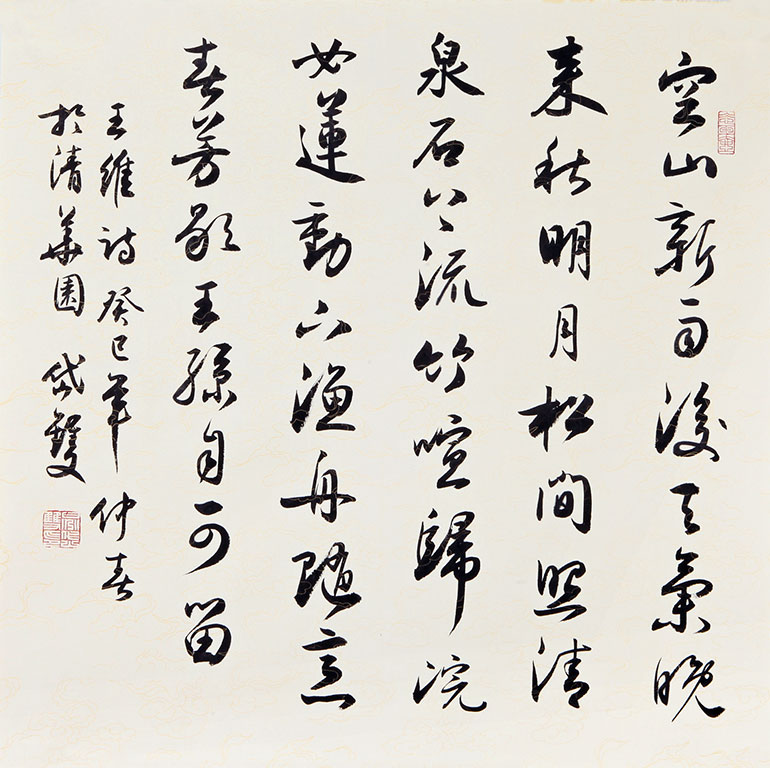 空山新雨後天氣晚
来秋明月松間照清
泉石上流竹喧歸浣
女蓮動下漁舟隨意
春芳歇王孫自可留
王維詩癸巳年仲春
於清華園 岱雙